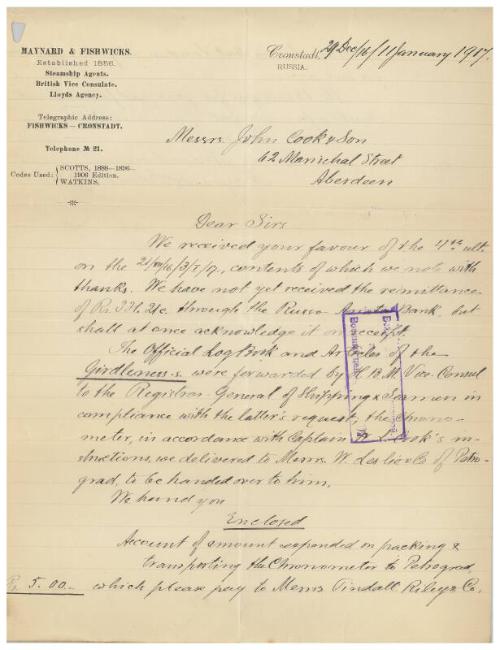 MAYNARD & FISHWICKS.
Established 1856.
Steamship Agents.
British Vice Consulate.
Lloyds Agency.
Telegraphic Address:
FISHWICKS — CRONSTADT.
Telephone № 21.
Codes Used: SCOTTS, 1888–1896–
1906 Edition.
WATKINS.
Cronstadt, 29 Dec/16/11 January 1917.
RUSSIA.
Messrs John Cook & Son
62 Marischal Street
Aberdeen
Dear Sirs
We received your favour of the 4th ult.
on the contents of which we note with
thanks. We have not yet received the remittance
of through the Russo Bank, but
shall at once acknowledge it on receipt.
The Official Log Book and Articles of the
Girdleness were forwarded by H.B.M. Vice Consul
to the Registrar General of Shipping & Seamen in
compliance with the latter's request, the Chrono-
meter, in accordance with Captain Cook's in-
structions, we delivered to Messrs W. Leslie & Co of Petro-
grad, to be handed over to him.
We hand you
Enclosed
Account of amount expended on packing &
transporting the Chronometer to Petrograd,
R. 5.00 — which please pay to Messrs Tindall Riley & Co.